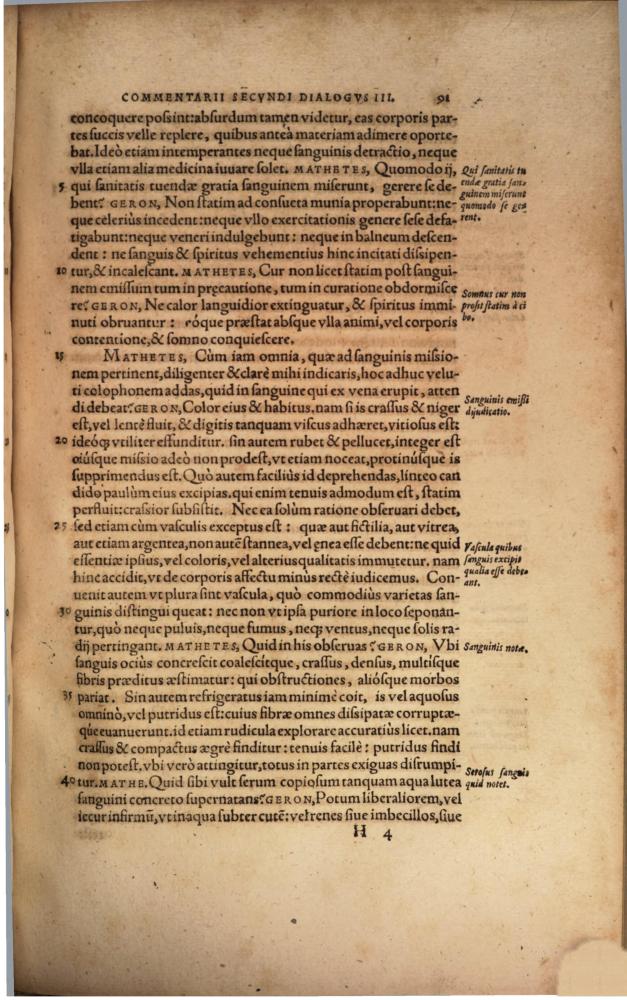 COMMENTARII SECVNDI DIALOGVS III. 91
concoquere possint: absurdum tamen videtur, eas corporis par-
tes succis velle replere, quibus anteà materiam adimere oporte-
bat. Ideò etiam intemperantes neque sanguinis detractio, neque
vlla etiam alia medicina iuuare solet. MATHETES, Quomodo ij,
5 qui sanitatis tuendæ gratia sanguinem miserunt, gerere se de-
bent? GERON, Non statim ad consueta munia properabunt: ne-
que celeriùs incedent: neque vllo exercitationis genere sese defa-
tigabunt: neque veneri indulgebunt: neque in balneum descen-
dent: ne sanguis & spiritus vehementius hinc incitati dissipen-
10 tur, & incalescant. MATHETES, Cur non licet statim post sangui-
nem emissum tum in precautione, tum in curatione obdormisce
re? GERON, Ne calor languidior extinguatur, & spiritus immi-
nuti obruantur: eóque præstat absque vlla animi, vel corporis
contentione, & somno conquiescere.
15 MATHETES, Cùm iam omnia, quæ ad sanguinis missio-
nem pertinent, diligenter & clarè mihi indicaris, hoc adhuc velu-
ti colophonem addas, quid in sanguine qui ex vena erupit, atten
di debeat? GERON, Color eius & habitus. nam si is crassus & niger
est, vel lentè fluit, & digitis tanquam viscus adhæret, vitiosus est:
20 ideóq; vtiliter effunditur. sin autem rubet & pellucet, integer est
eiúsque missio adeò non prodest, vt etiam noceat, protinúsque is
supprimendus est. Quò autem faciliùs id deprehendas, línteo can
dido paulùm eius excipias. qui enim tenuis admodum est, statim
perfluit: crassior subsistit. Nec ea solùm ratione obseruari debet,
25 sed etiam cùm vasculis exceptus est: quæ aut fictilia, aut vitrea,
aut etiam argentea, non autē stannea, vel ænea esse debent: ne quid
essentiæ ipsius, vel coloris, vel alterius qualitatis immutetur. nam
hinc accidit, vt de corporis affectu minùs rectè iudicemus. Con-
uenit autem vt plura sint vascula, quò commodiùs varietas san-
30 guinis distingui queat: nec non vt ipsa puriore in loco seponan-
tur, quò neque puluis, neque fumus, neq; ventus, neque solis ra-
dij pertingant. MATHETES, Quid in his obseruas? GERON, Vbi
sanguis ociùs concrescit coalescitque, crassus, densus, multisque
fibris præditus æstimatur: qui obstructiones, aliósque morbos
35 pariat. Sin autem refrigeratus iam minimè coit, is vel aquosus
omninò, vel putridus est: cuius fibræ omnes dissipatæ corruptæ-
qúe euanuerunt. id etiam rudicula explorare accuratiùs licet. nam
crassus & compactus ægrè finditur: tenuis facilè: putridus findi
non potest. vbi verò attingitur, totus in partes exiguas disrumpi-
40 tur. MATHE. Quid sibi vult serum copiosum tanquam aqua lutea
sanguini concreto supernatans? GERON, Potum liberaliorem, vel
iecur infirmū, vt in aqua subter cutē: vel renes siue imbecillos, siue
H 4
Qui sanitatis tu
endæ gratia san-
guinem miserunt
quomodo se ge
rent.
Somnus cur non
prosit statim à ci
bo.
Sanguinis emissi
dijudicatio.
Vascula quibus
sanguis excipi
qualia esse debe-
ant.
Sanguinis notæ.
Serosus sanguis
quid notet.